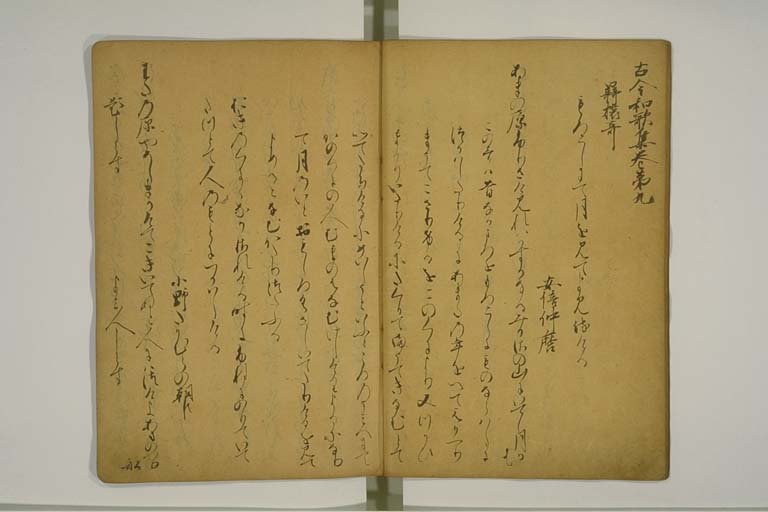 古今和歌集巻第九
羇旅哥
もろこしにて月を見てよみける
安倍仲麿
あまの原ふりさけ見れはかすかなるみかさの山にいてし月かも
この哥は昔なかまろをもろこしにものならはしに
つかはしたりけるにあまたの年をへてえかへり
まうてこさりけるをこのくにより又つかひ
まかりいたりけるにたくひてまうてきなむとて
いてたちけるにめいしうといふところのうみへにて
かのくにの人むまのはなむけしけりよるになり
て月のいとおもしろくさしいてたりけるを見て
よめるとなむかたりつたふる
おきのくにになかされける時に舟にのりていて
たつとて人のもとにつかはしける
小野たかむらの朝臣
わたの原やそしまかけてこきいてぬと人には